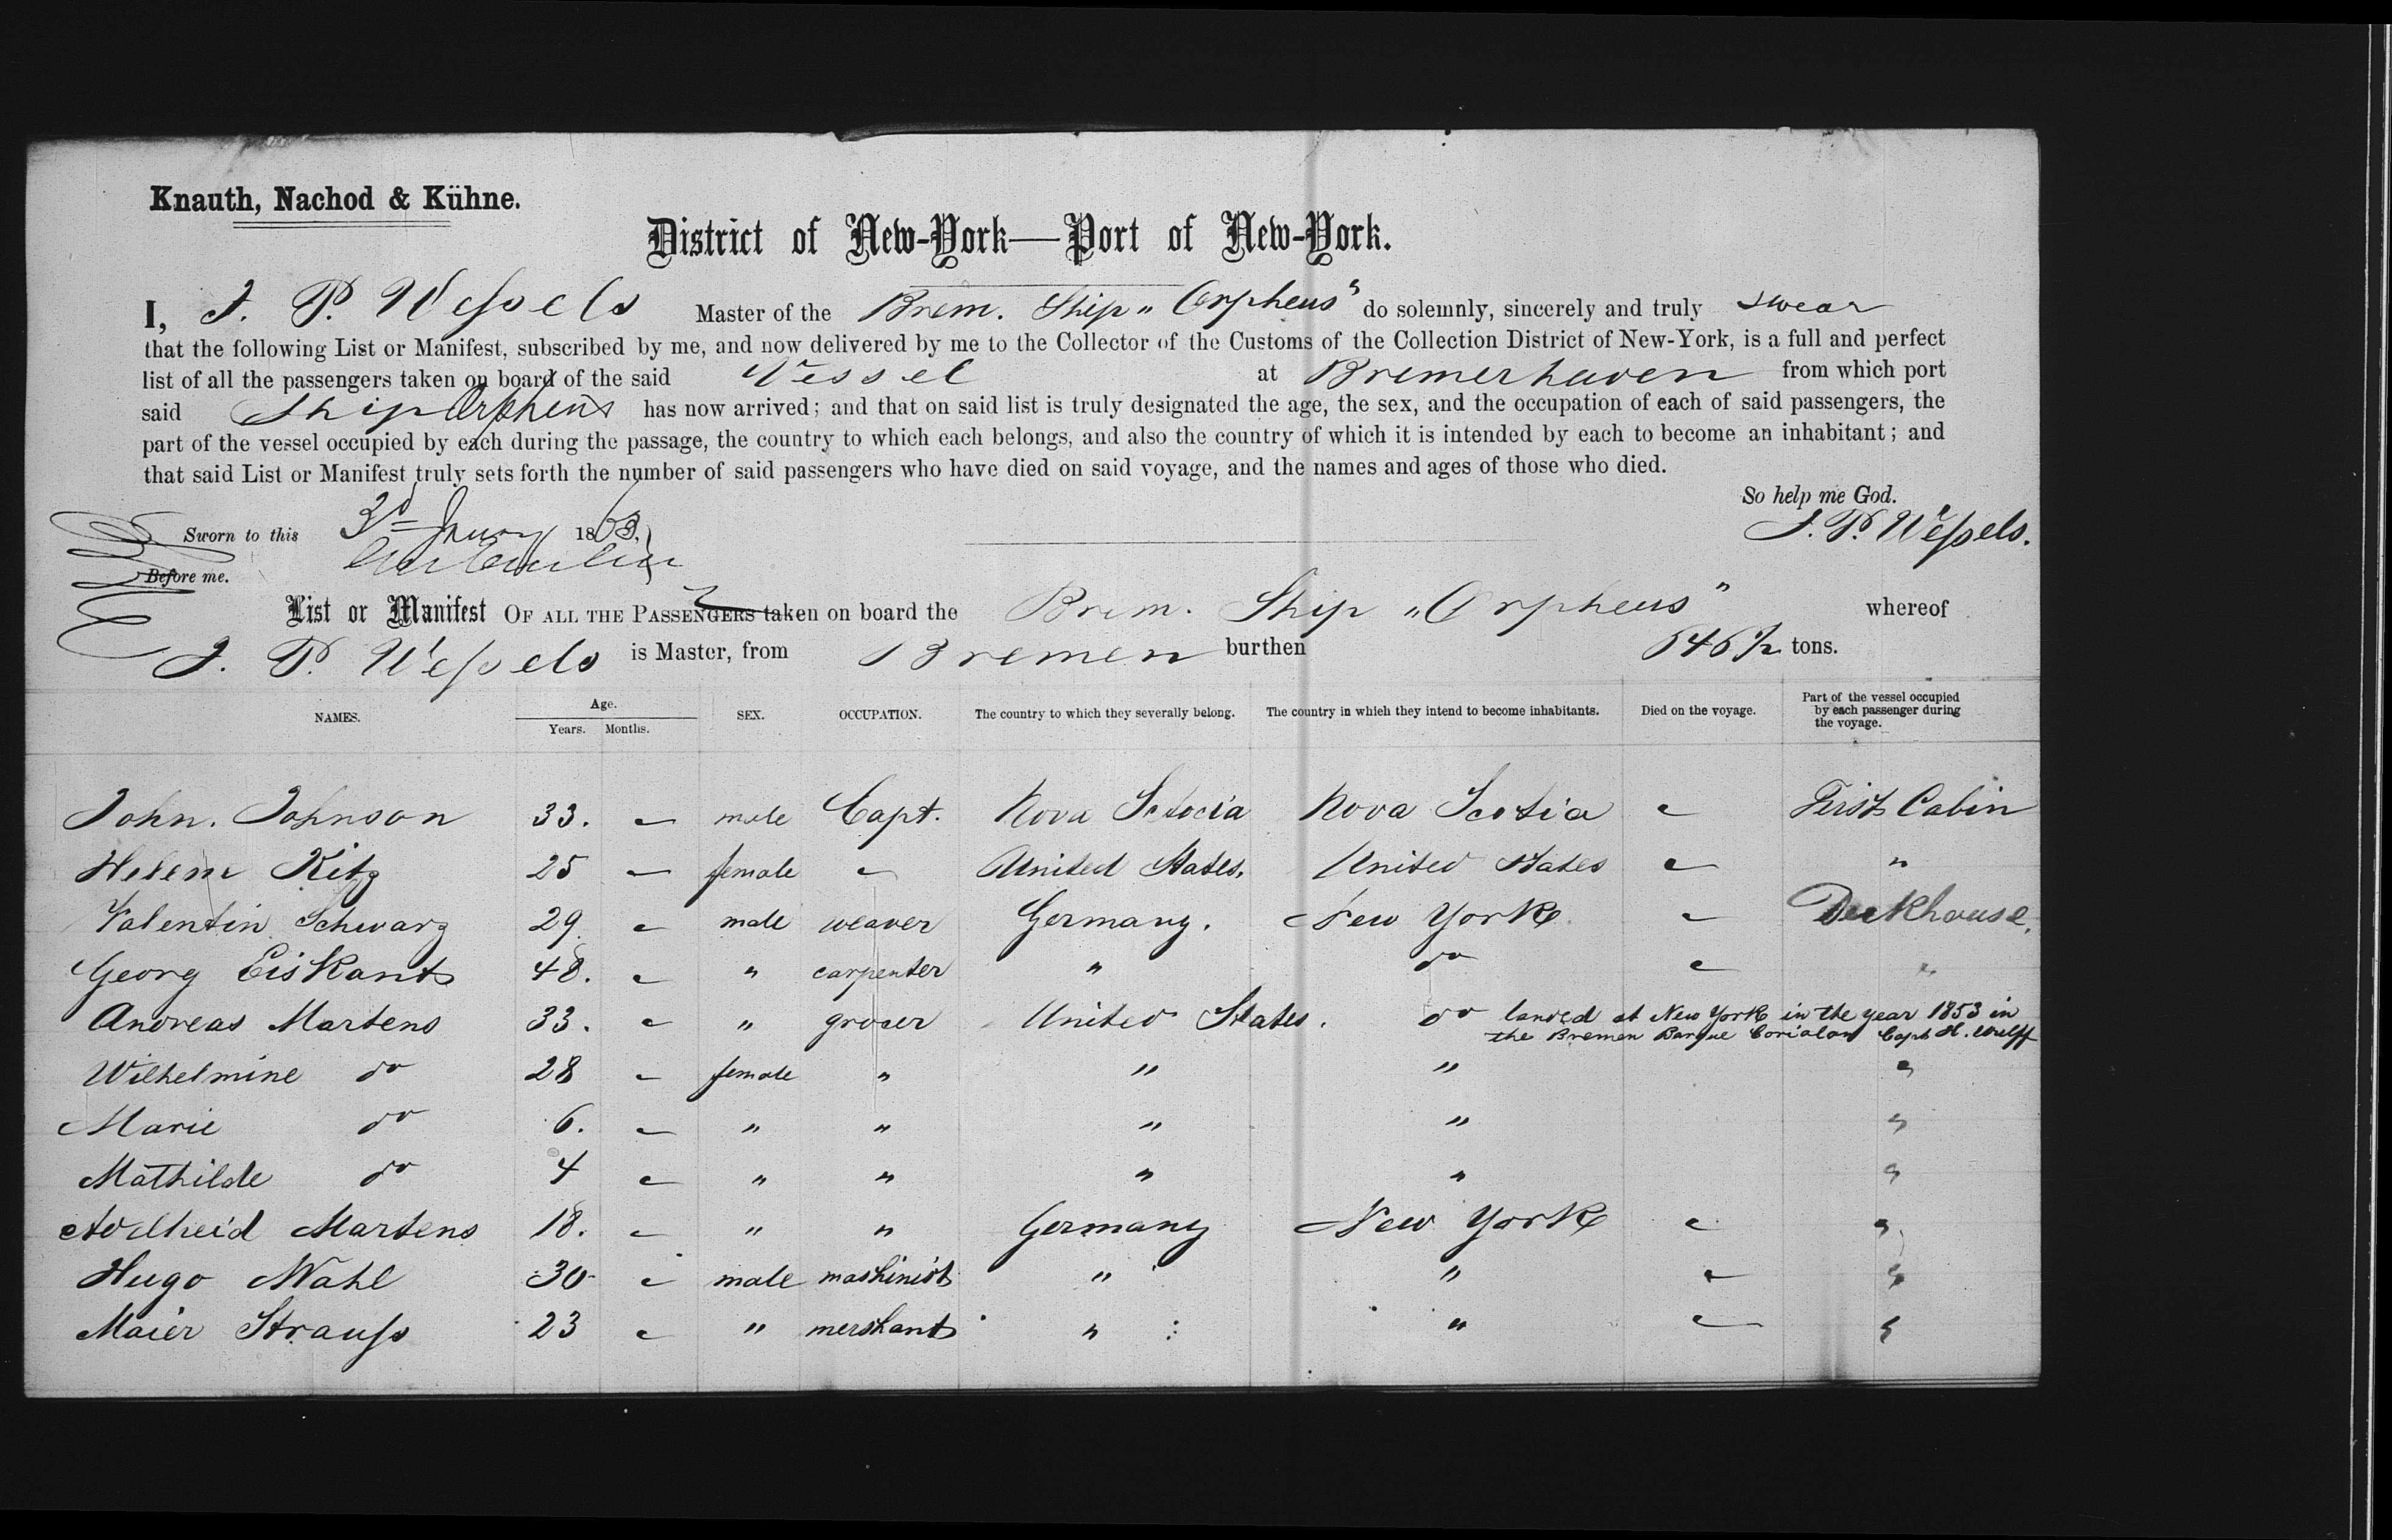 Knauth, Nachod & Kühne.
District of New-York—Port of New-York.
I, J. P. Weſsels Master of the Brem. Ship „Orpheus" do solemnly, sincerely and truly swear
that the following List or Manifest, subscribed by me, and now delivered by me to the Collector of the Customs of the Collection District of New-York, is a full and perfect
list of all the passengers taken on board of the said Vessel at Bremerhaven from which port
said Ship Orpheus has now arrived; and that on said list is truly designated the age, the sex, and the occupation of each of said passengers, the
part of the vessel occupied by each during the passage, the country to which each belongs, and also the country of which it is intended by each to become an inhabitant; and
that said List or Manifest truly sets forth the number of said passengers who have died on said voyage, and the names and ages of those who died.
So help me God.
Sworn to this 3d 1863. J. P. Weſsels.
Before me.
List or Manifest OF ALL THE PASSENGERS taken on board the Brem. Ship „Orpheus" whereof
J. P. Weſsels is Master, from Bremen burthen tons.
NAMES. Age. Years. Months. SEX. OCCUPATION. The country to which they severally belong. The country in which they intend to become inhabitants. Died on the voyage. Part of the vessel occupied by each passenger during the voyage.
John. Johnson 33. — male Capt. Nova Sctocia Nova Scotia — Firsts Cabin
Helene Kitz 25 — female — United States. United States — "
Valentin Schwarz 29 — male weaver Germany. New York — Deckhouse.
Georg Eiskants 48. — " carpenter " do — "
Andreas Martens 33. — " grocer United States. do landed at New York in the year 1853 in
the Bremen Barque Coriolan Capt H. Wulff
Wilhelmine do 28 — female " " " "
Marie do 6. — " " " " "
Mathilde do 4 — " " " " "
Adelheid Martens 18. — " " Germany New York — "
Hugo Wahl 30 — male mashinist " " — "
Maier Strauſs 23 — " mershant " " — "